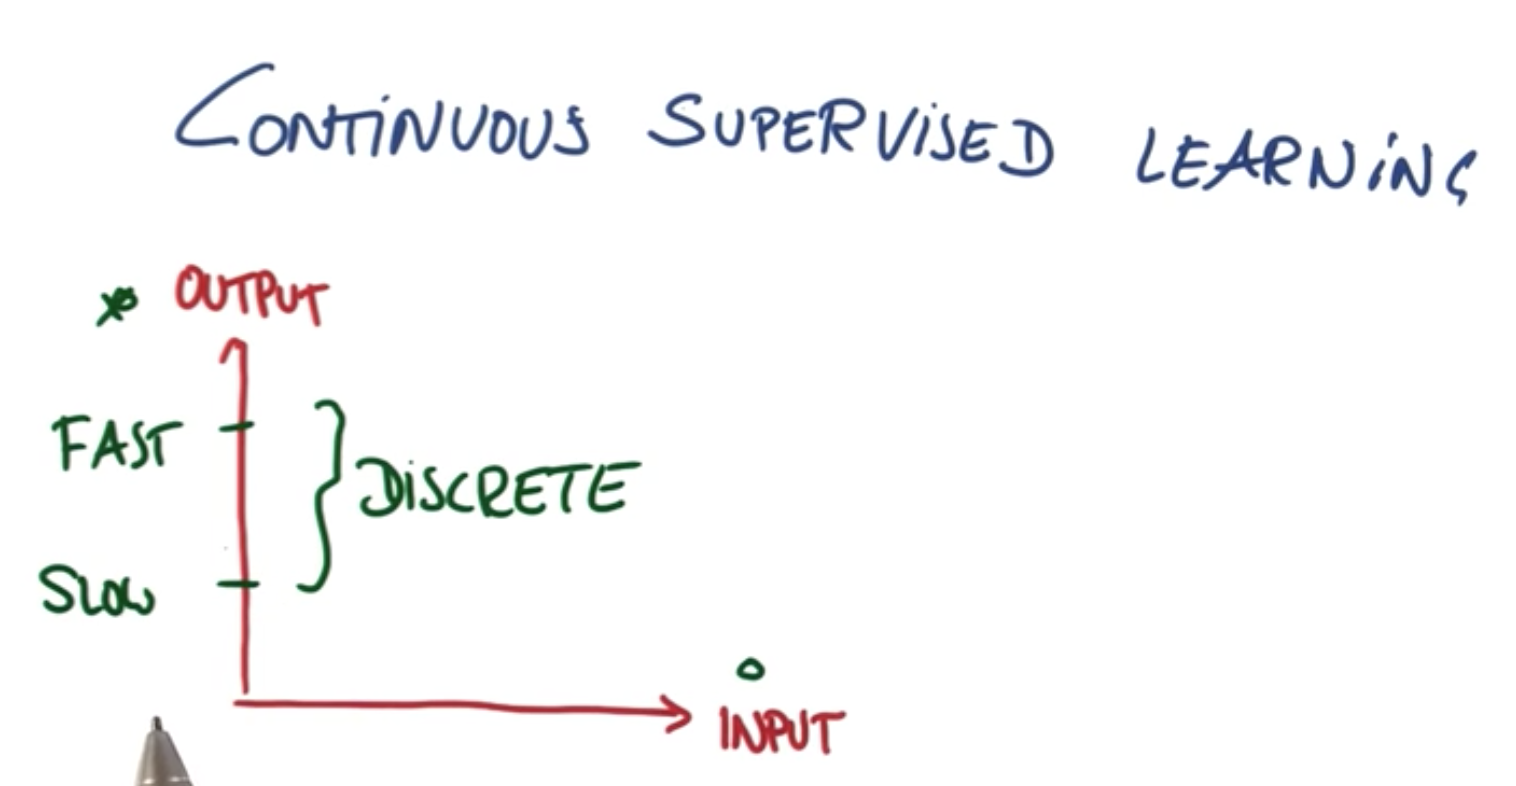 CONTINUOUS SUPERVISED LEARNING
OUTPUT
FAST
DISCRETE
SLOW
INPUT